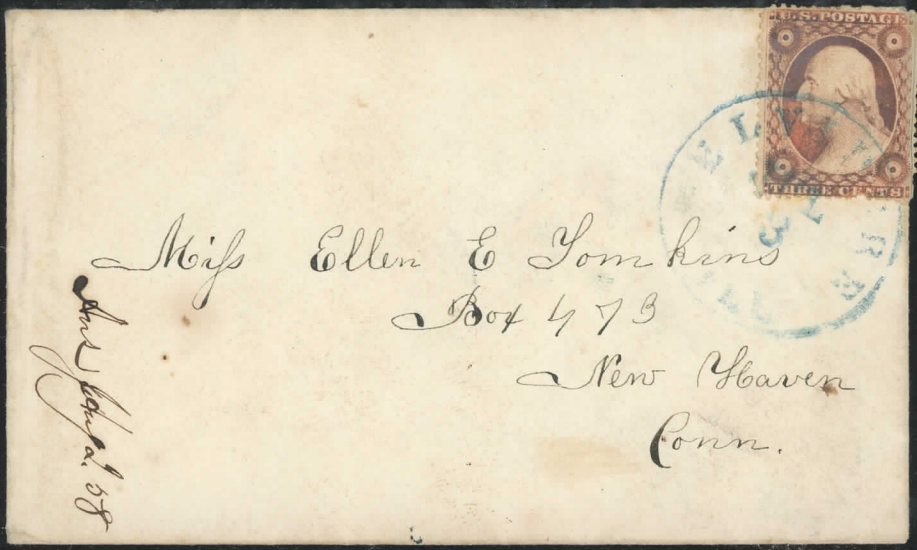 U.S. POSTAGE
THREE CENTS
Miſs Ellen E Tomkins
Box 473
New Haven
Conn.